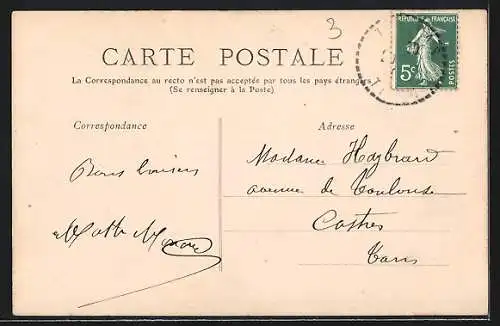 3
CARTE POSTALE
RÉPUBLIQUE FRANÇAISE
5c
POSTES
La Correspondance au recto n'est pas acceptée par tous les pays étrangers
(Se renseigner à la Poste)
Correspondance
Adresse
Bons baisers
Madame
avenue de Toulouse
Castres
Tarn